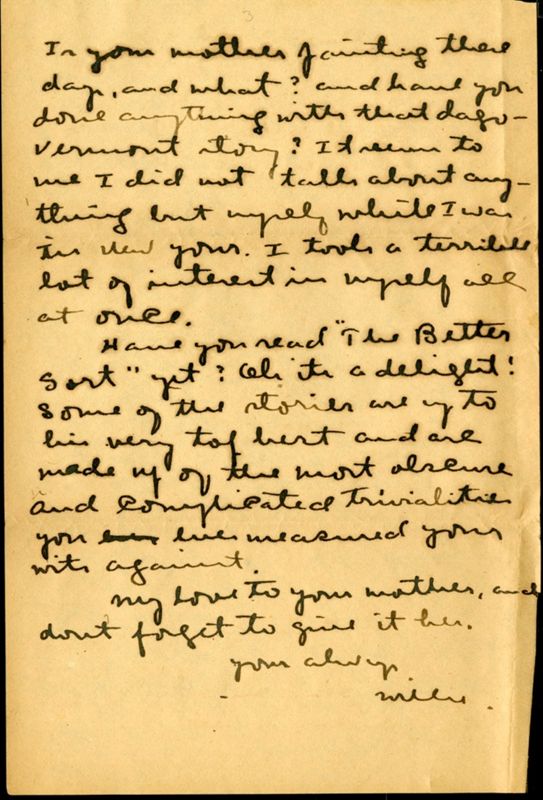 3
Is your mother painting these
days, and what? and have you
done anything with that dago-
Vermont story? It seems to
me I did not talk about any-
thing but myself while I was
in New York. I took a terrible
lot of interest in myself all
at once.
Have you read "The Better
Sort" yet? Oh it's a delight!
Some of the stories are up to
his very top best and are
made up of the most obscure
and complicated trivialities
you ever measured your
wits against.
My love to your mother, and
don't forget to give it her.
Yours always
Willie.